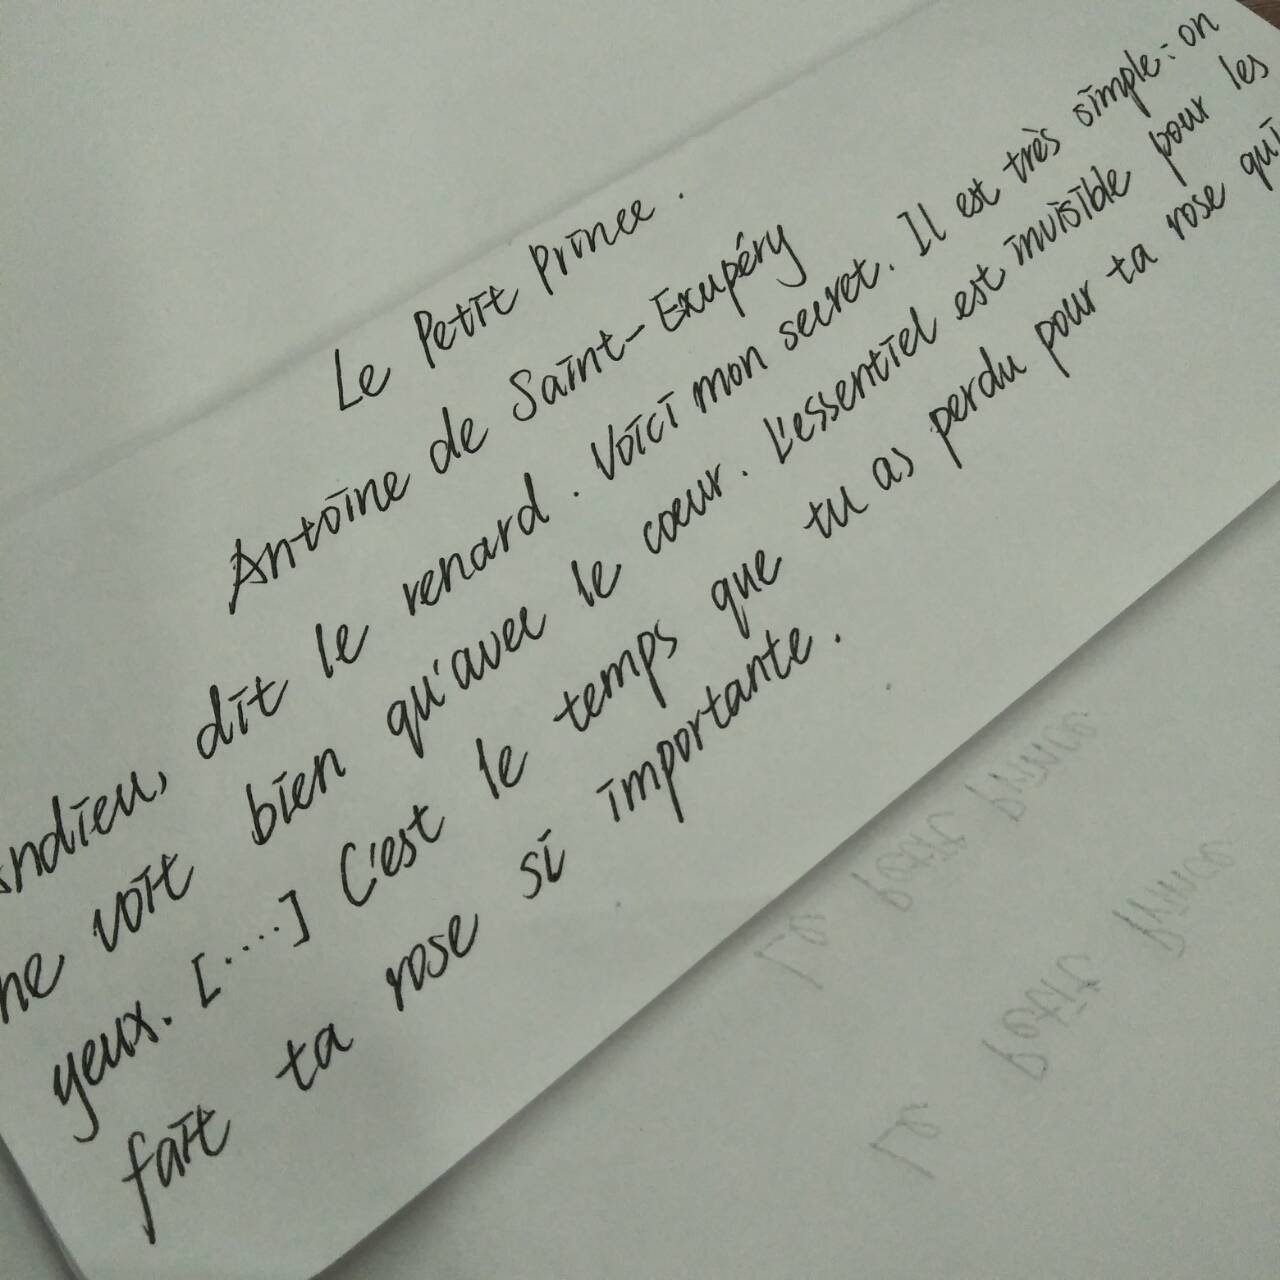 Le Petit Prince.
Antoine de Saint-Exupéry
andieu, dit le renard. Voici mon secret. Il est très simple: on
ne voit bien qu'avec le cœur. L'essentiel est invisible pour les
yeux. [....] C'est le temps que tu as perdu pour ta rose qui
fait ta rose si importante.
Le Petit Prince
Le Petit Prince